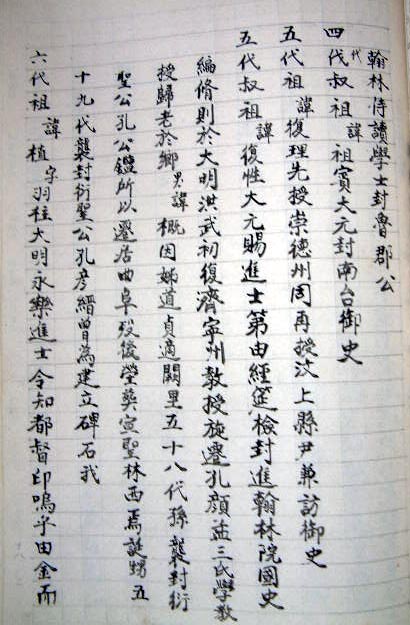 翰林侍讀學士封魯郡公
四代叔祖諱祖賓大元封南台御史
五代祖諱復理先授崇德州同再授汶上縣尹兼訪御史
五代叔祖諱復性大元賜進士第由經筵檢封進翰林院國史
編脩則於大明洪武初復濟寧州教授旋遷孔顏孟三氏學教
授歸老於鄉男諱概因姊道貞適闕里五十八代孫襲封衍
聖公孔公鑑所以遷居曲阜歿後塋葬宣聖林西焉誕甥五
十九代襲封衍聖公孔彥縉曾為建立碑石我
六代祖諱植字羽柱大明永樂進士令知都督印嗚乎由金而